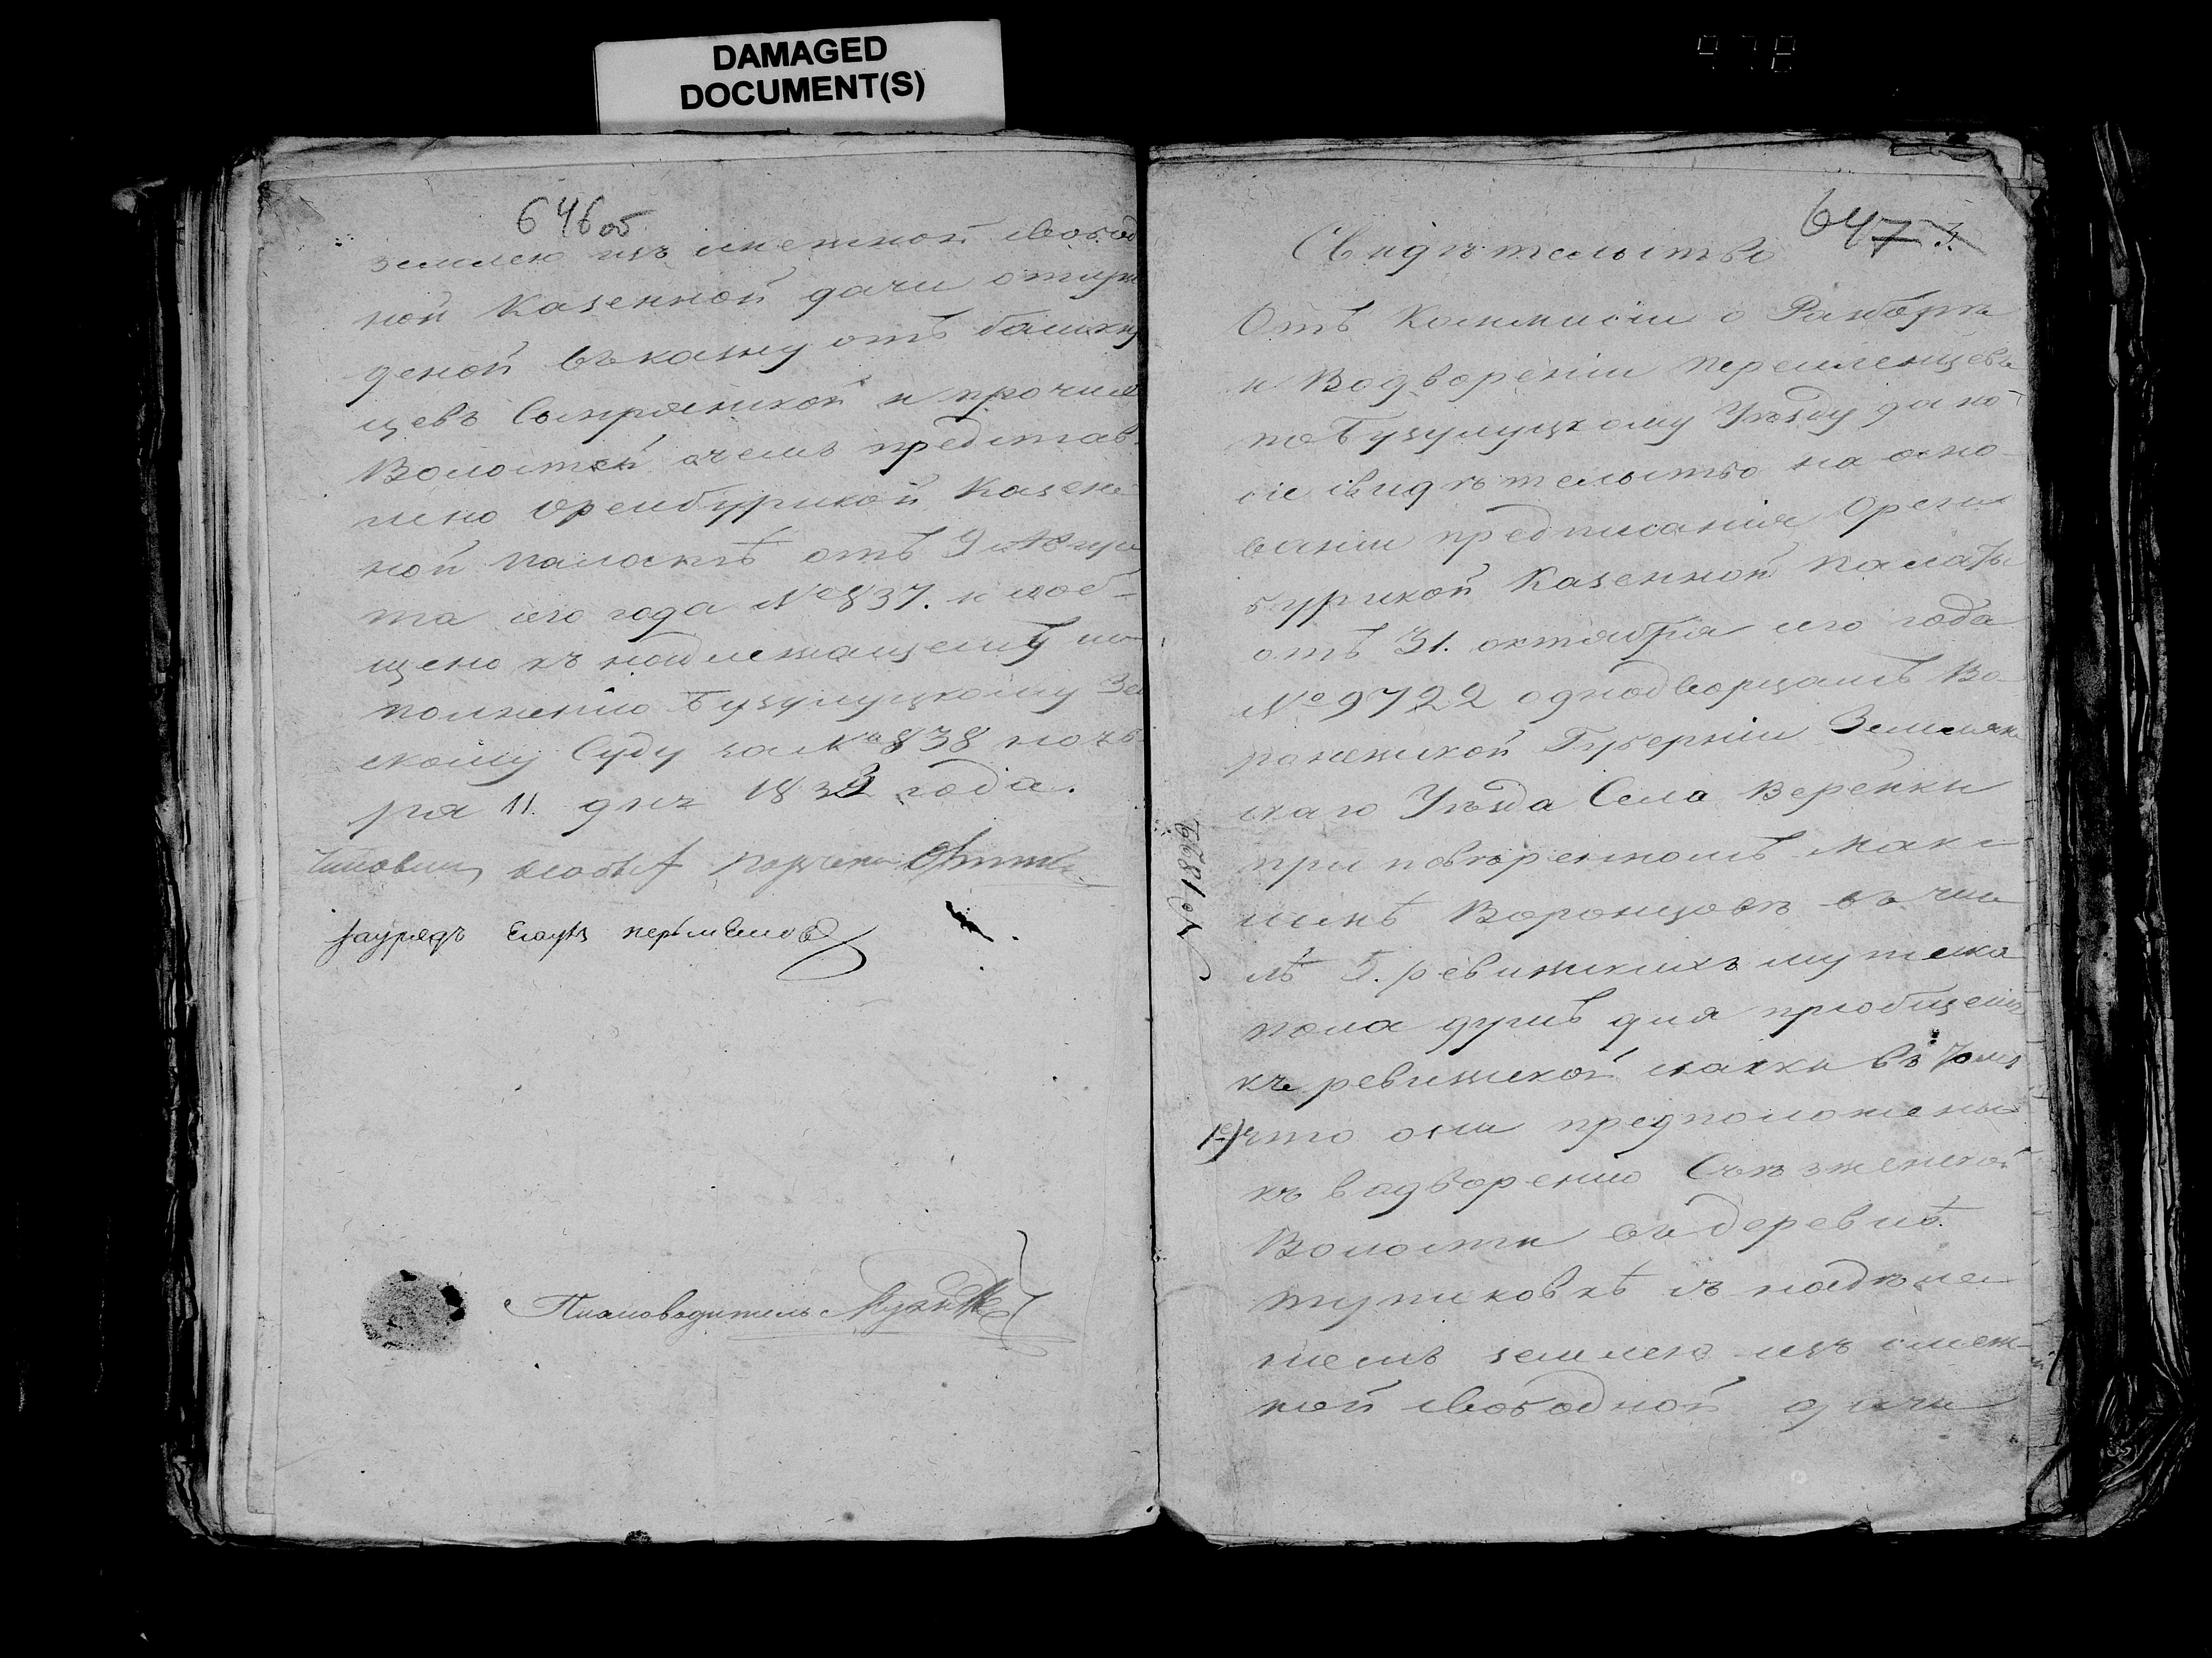 DAMAGED
DOCUMENT(S)
646 об
землею изъ смежной свобод
ной Казенной дачи отсуж
деной въ казну отъ башкир
цевъ Сынрянской и прочихъ
Волостей очемъ представ
лено Оренбургской Казен
ной палатѣ отъ 9 Авгу
та сего года № 837. и сооб-
щено къ надлежащему ис
полнению Бузулуцкому Зем
скому Суду за № 838 нояб
ря 11. дня 1833 года.
порутчикъ
заурядъ Есаулъ
Плановодитель
647
Свидѣтельство
Отъ Коммисіи о Разборѣ
и Водвореніи переселенцевъ
по Бузулуцкому Уѣзду дано
сіе свидѣтельство на осно-
ваніи предписанія Орен
бургской Казенной палаты
отъ 31. октября сего года
№ 9722 однодворцамъ Во-
ронежской Губерніи Землян
скаго Уѣзда Села Верейки
при повѣренномъ Мак
симѣ Воронцовѣ въ чис
лѣ 5. ревижскихъ мужеска
пола душъ для приобщенія
къ ревижской скаски въ томъ
1е) что они предположены
къ вадворению Съезженской
Волости въ деревнѣ
съ надѣле
ніемъ землею изъ смеж-
ной свободной дачи
№ 1879